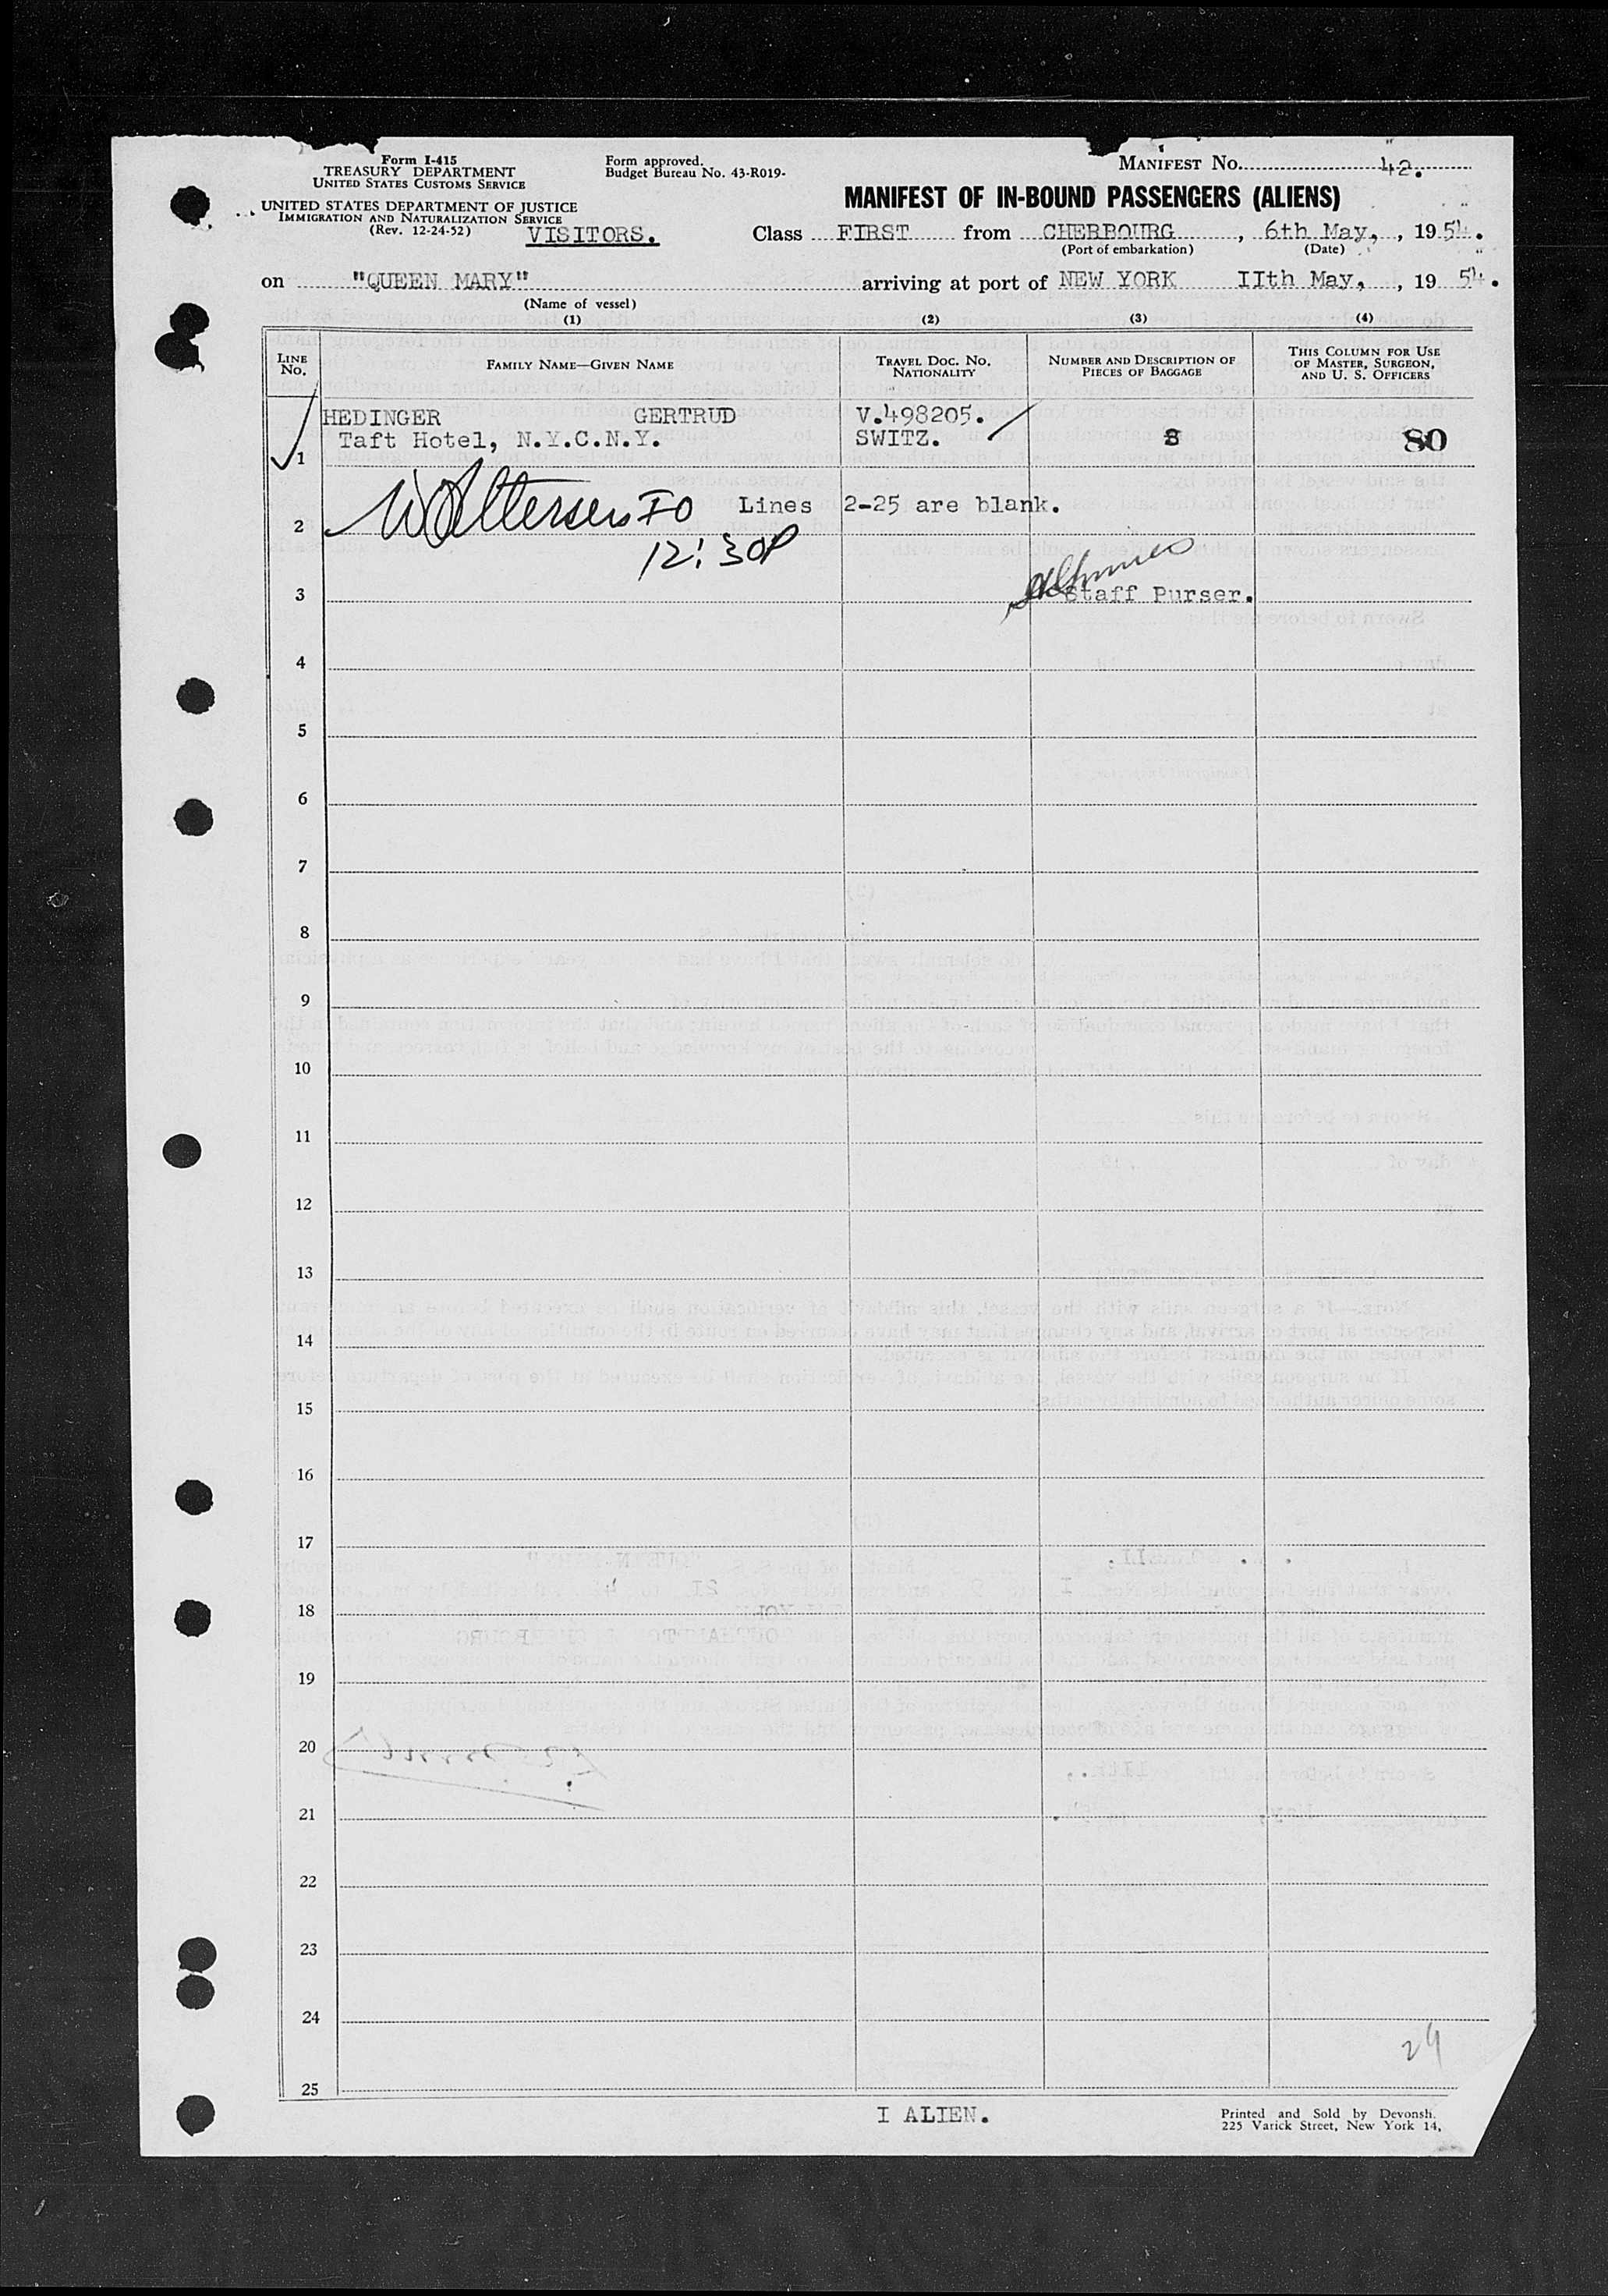 Form I-415
TREASURY DEPARTMENT
UNITED STATES CUSTOMS SERVICE
UNITED STATES DEPARTMENT OF JUSTICE
IMMIGRATION AND NATURALIZATION SERVICE
(Rev. 12-24-52)
VISITORS.
Form approved.
Budget Bureau No. 43-R019-
MANIFEST No. 42.
MANIFEST OF IN-BOUND PASSENGERS (ALIENS)
Class FIRST from CHERBOURG, 6th May, , 1954.
(Port of embarkation) (Date)
on "QUEEN MARY" arriving at port of NEW YORK IIth May, , 19 54.
(Name of vessel)
(1) (2) (3) (4)
LINE No. FAMILY NAME—GIVEN NAME TRAVEL DOC. NO. NATIONALITY NUMBER AND DESCRIPTION OF PIECES OF BAGGAGE THIS COLUMN FOR USE OF MASTER, SURGEON, AND U. S. OFFICERS
HEDINGER GERTRUD V.498205.
Taft Hotel, N.Y.C.N.Y. SWITZ. 80
1
IO Lines 2-25 are blank.
2
12:30P
3 Staff Purser.
4
5
6
7
8
9
10
11
12
13
14
15
16
17
18
19
20
21
22
23
24
29
25
I ALIEN.
Printed and Sold by Devonsh.
225 Varick Street, New York 14,